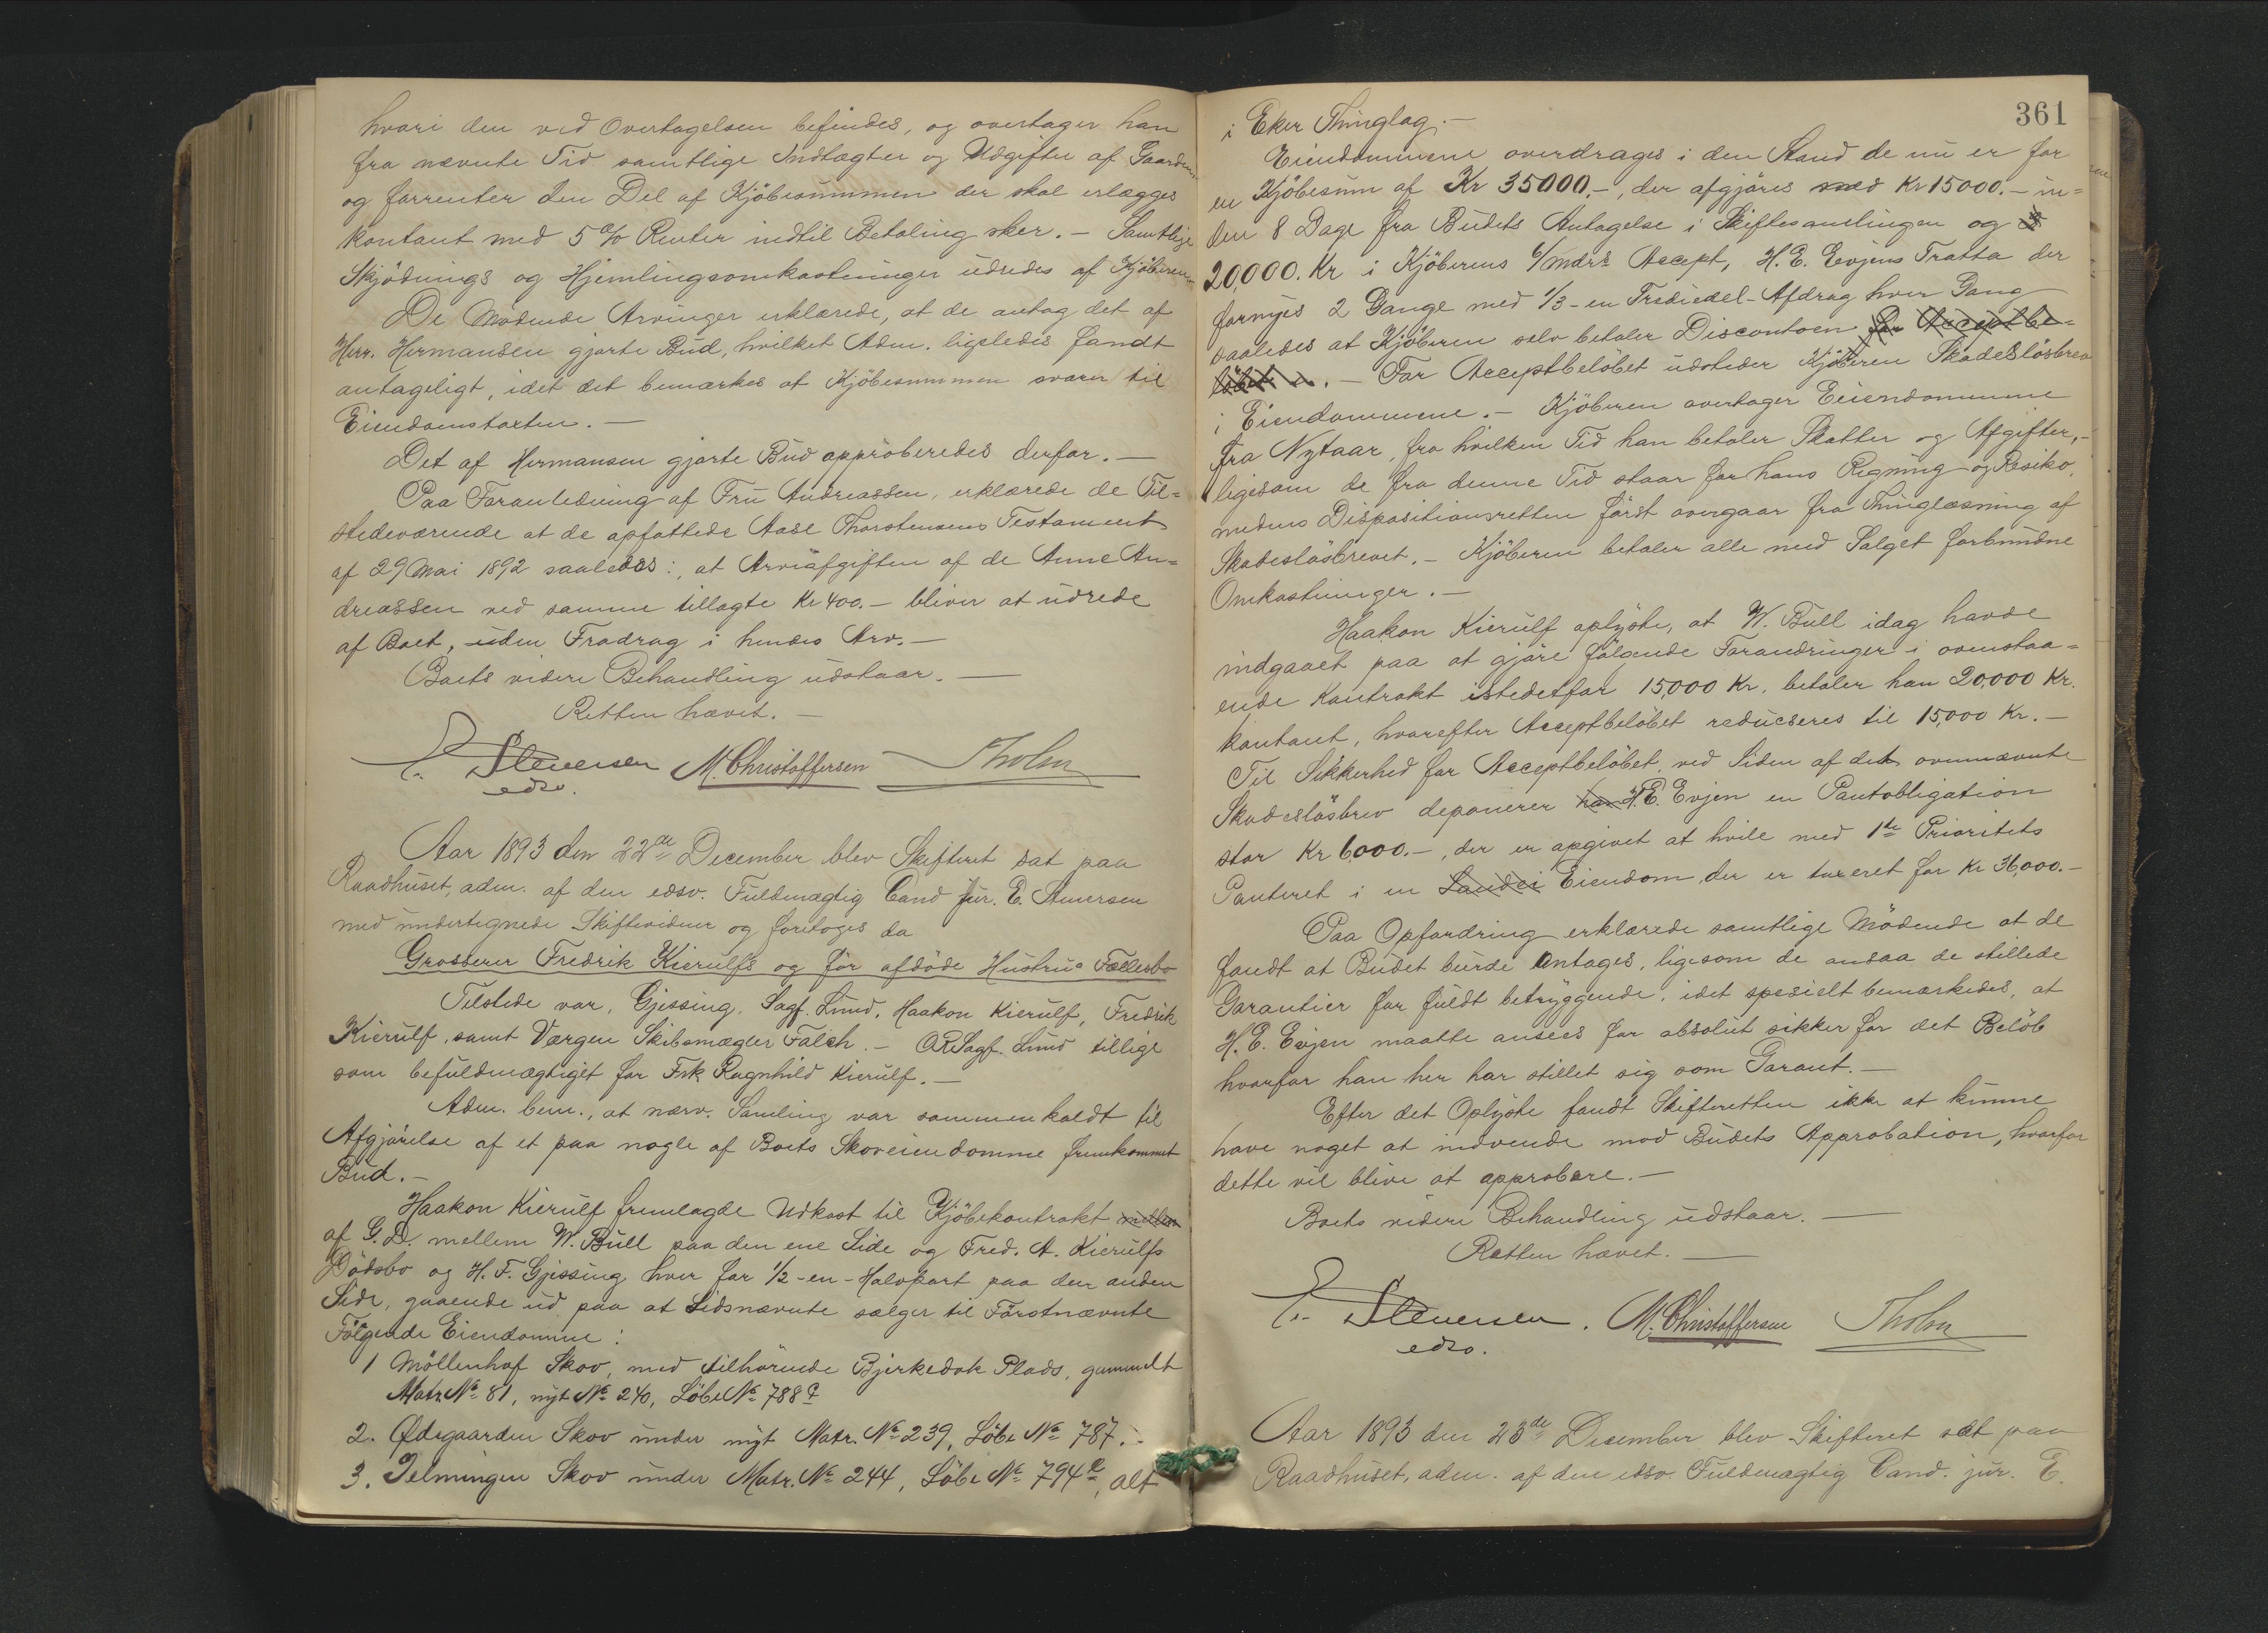 hvori den ved Overtagelsen befindes, og overtager han
fra nævnte Tid samtlige Indtægter og Udgifter af Gaarden,
og forrenter den Del af Kjöbesummen der skal erlægges
kontant med 5 % Renter indtil Betaling sker. – Samtlige
Skjödnings og Hjemlingsomkostninger udredes af Kjöberen
De Mødende Arvinger erklærede, at de antog det af
Herr. Hermansen gjorte Bud, hvilket Adm. ligeledes fandt
antageligt, idet det bemærkes at Kjöbesummen svarer til
Eiendomstaxten. –
Det af Hermansen gjorte Bud approberedes derfor. –
Paa Foranledning af Fru Andreassen, erklærede de Til=
stedeværende at de opfattede Aase Thorstensens Testament
af 29 Mai 1892 saaledes:, at Arveafgiften af de Anne An=
dreassen ved samme tillagte Kr 400. – bliver at udrede
af Boet, uden Fradrag i hendes Arv. –
Boets videre Behandling udstaar. –
Retten hævet. –
E. Stenersen M. Christoffersen Tholm
edsv.
Aar 1893 den 22de December blev Skifteret sat paa
Raadhuset, adm. af den edsv. Fuldmægtig Cand jur. E. Stenersen
med undertegnede Skiftevidner og foretoges da
Grosserer Fredrik Kierulfs og før afdöde Hustrus Fællesbo
Tilstede var, Gjessing, Sagf. Lund, Haakon Kierulf, Fredrik
Kierulf, samt Værgen Skibsmægler Falch. – ORSagf. Lund tillige
som befuldmægtiget for Frk Ragnhild Kierulf. –
Adm. bem., at nærv. Samling var sammenkaldt til
Afgjörelse af et paa nogle af Boets Skoveiendomme fremkommet
Bud. –
Haakon Kierulf fremlagde Udkast til Kjöbekontrakt mellem
af G. D. mellem W. Bull paa den ene Side og Fred. A. Kierulfs
Dödsbo og H. F. Gjessing hver for 1/2 - en - Halvpart paa den anden
Side, gaaende ud paa at Sidsnævnte sælger til Förstnævnte
Følgende Eiendomme:
1 Möllenhof Skov, med tilhörende Bjerkedok Plads, gammelt
Matr. No 81, nyt No 240, Löbe No 788a
2. Ødegaarden Skov under nyt Matr. No 239, Löbe No 787. –
3. Jelmingen Skov under Matr. No 244, Löbe No 794e, alt
361
i Eker Thinglag. –
Eiendommene overdrages i den Stand de nu er for
en Kjöbesum af Kr 35000. –, der afgjöres med Kr 15000. – in=
den 8 Dage fra Budets Antagelse i Skiftesamlingen og
20,000. Kr i Kjöberens 6/mdrs Accept, H. E. Evjens Tratta der
fornyes 2 Gange med 1/3 - en Trediedel - Afdrag hver Gang
saaledes at Kjöberen selv betaler Discontoen for Acceptbe=
löbet. – For Acceptbelöbet udsteder Kjöberen Skadeslösbrev
i Eiendommene. – Kjöberen overtager Eiendommene
fra Nytaar, fra hvilken Tid han betaler Skatter og Afgifter, –
ligesom de fra denne Tid staar for hans Regning og Resiko,
medens Dispositionsretten först overgaar fra Thinglæsning af
Skadeslösbrevet. – Kjöberen betaler alle med Salget forbundne
Omkostninger. –
Haakon Kierulf oplyste, at W. Bull idag havde
indgaaet paa at gjöre fölgende Forandringer i ovenstaa=
ende Kontrakt istedetfor 15,000 Kr. betaler han 20,000 Kr.
kontant, hvorefter Acceptbelöbet reduceres til 15,000 Kr. –
Til Sikkerhed for Acceptbelöbet, ved Siden af det ovennævnte
Skadeslösbrev deponerer han H. E. Evjen en Pantobligation
stor Kr 6,000. –, der er opgivet at hvile med 1ste Prioritets
Panteret i en Landei Eiendom, der er taxeret for Kr 36,000. –
Paa Opfordring erklærede samtlige Mödende at de
fandt at Budet burde Antages, ligesom de ansaa de stillede
Garantier for fuldt betryggende, idet spesielt bemærkedes, at
H. E. Evjen maatte ansees for absolut sikker for det Belöb
hvorfor han her har stillet sig som Garant. –
Efter det Oplyste fandt Skifteretten ikke at kunne
have noget at indvende mod Budets Approbation, hvorfor
dette vil blive at approbere. –
Boets videre Behandling udstaar. –
Retten hævet. –
E. Stenersen. M. Christoffersen Tholm
edsv.
Aar 1893 den 23de December blev Skifteret sat paa
Raadhuset, adm. af den edsv. Fuldmægtig Cand. jur. E.